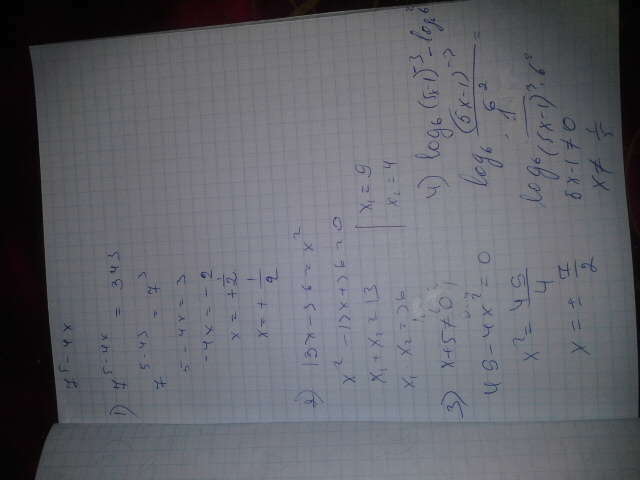 7^5-4x
1) 7^5-4x = 343
7^5-43 = 7^3
5-4x = 3
-4x = -2
x = +1/2
x = + 1/2
2) 13x-36 = x^2
x^2 -13x+36 = 0
x₁ + x₂ = 13
x₁ · x₂ = 36
x₁ = 9
x₂ = 4
3) x+5≠0
49-4x^2 = 0
x^2 = 49/4
x = ± 7/2
4) log₆(5x-1)^-3 - log₆6^2
log₆ (5x-1)^-3/6^2 =
log₆ 1/(5x-1)^3·6^2
5x-1≠0
x≠ 1/5